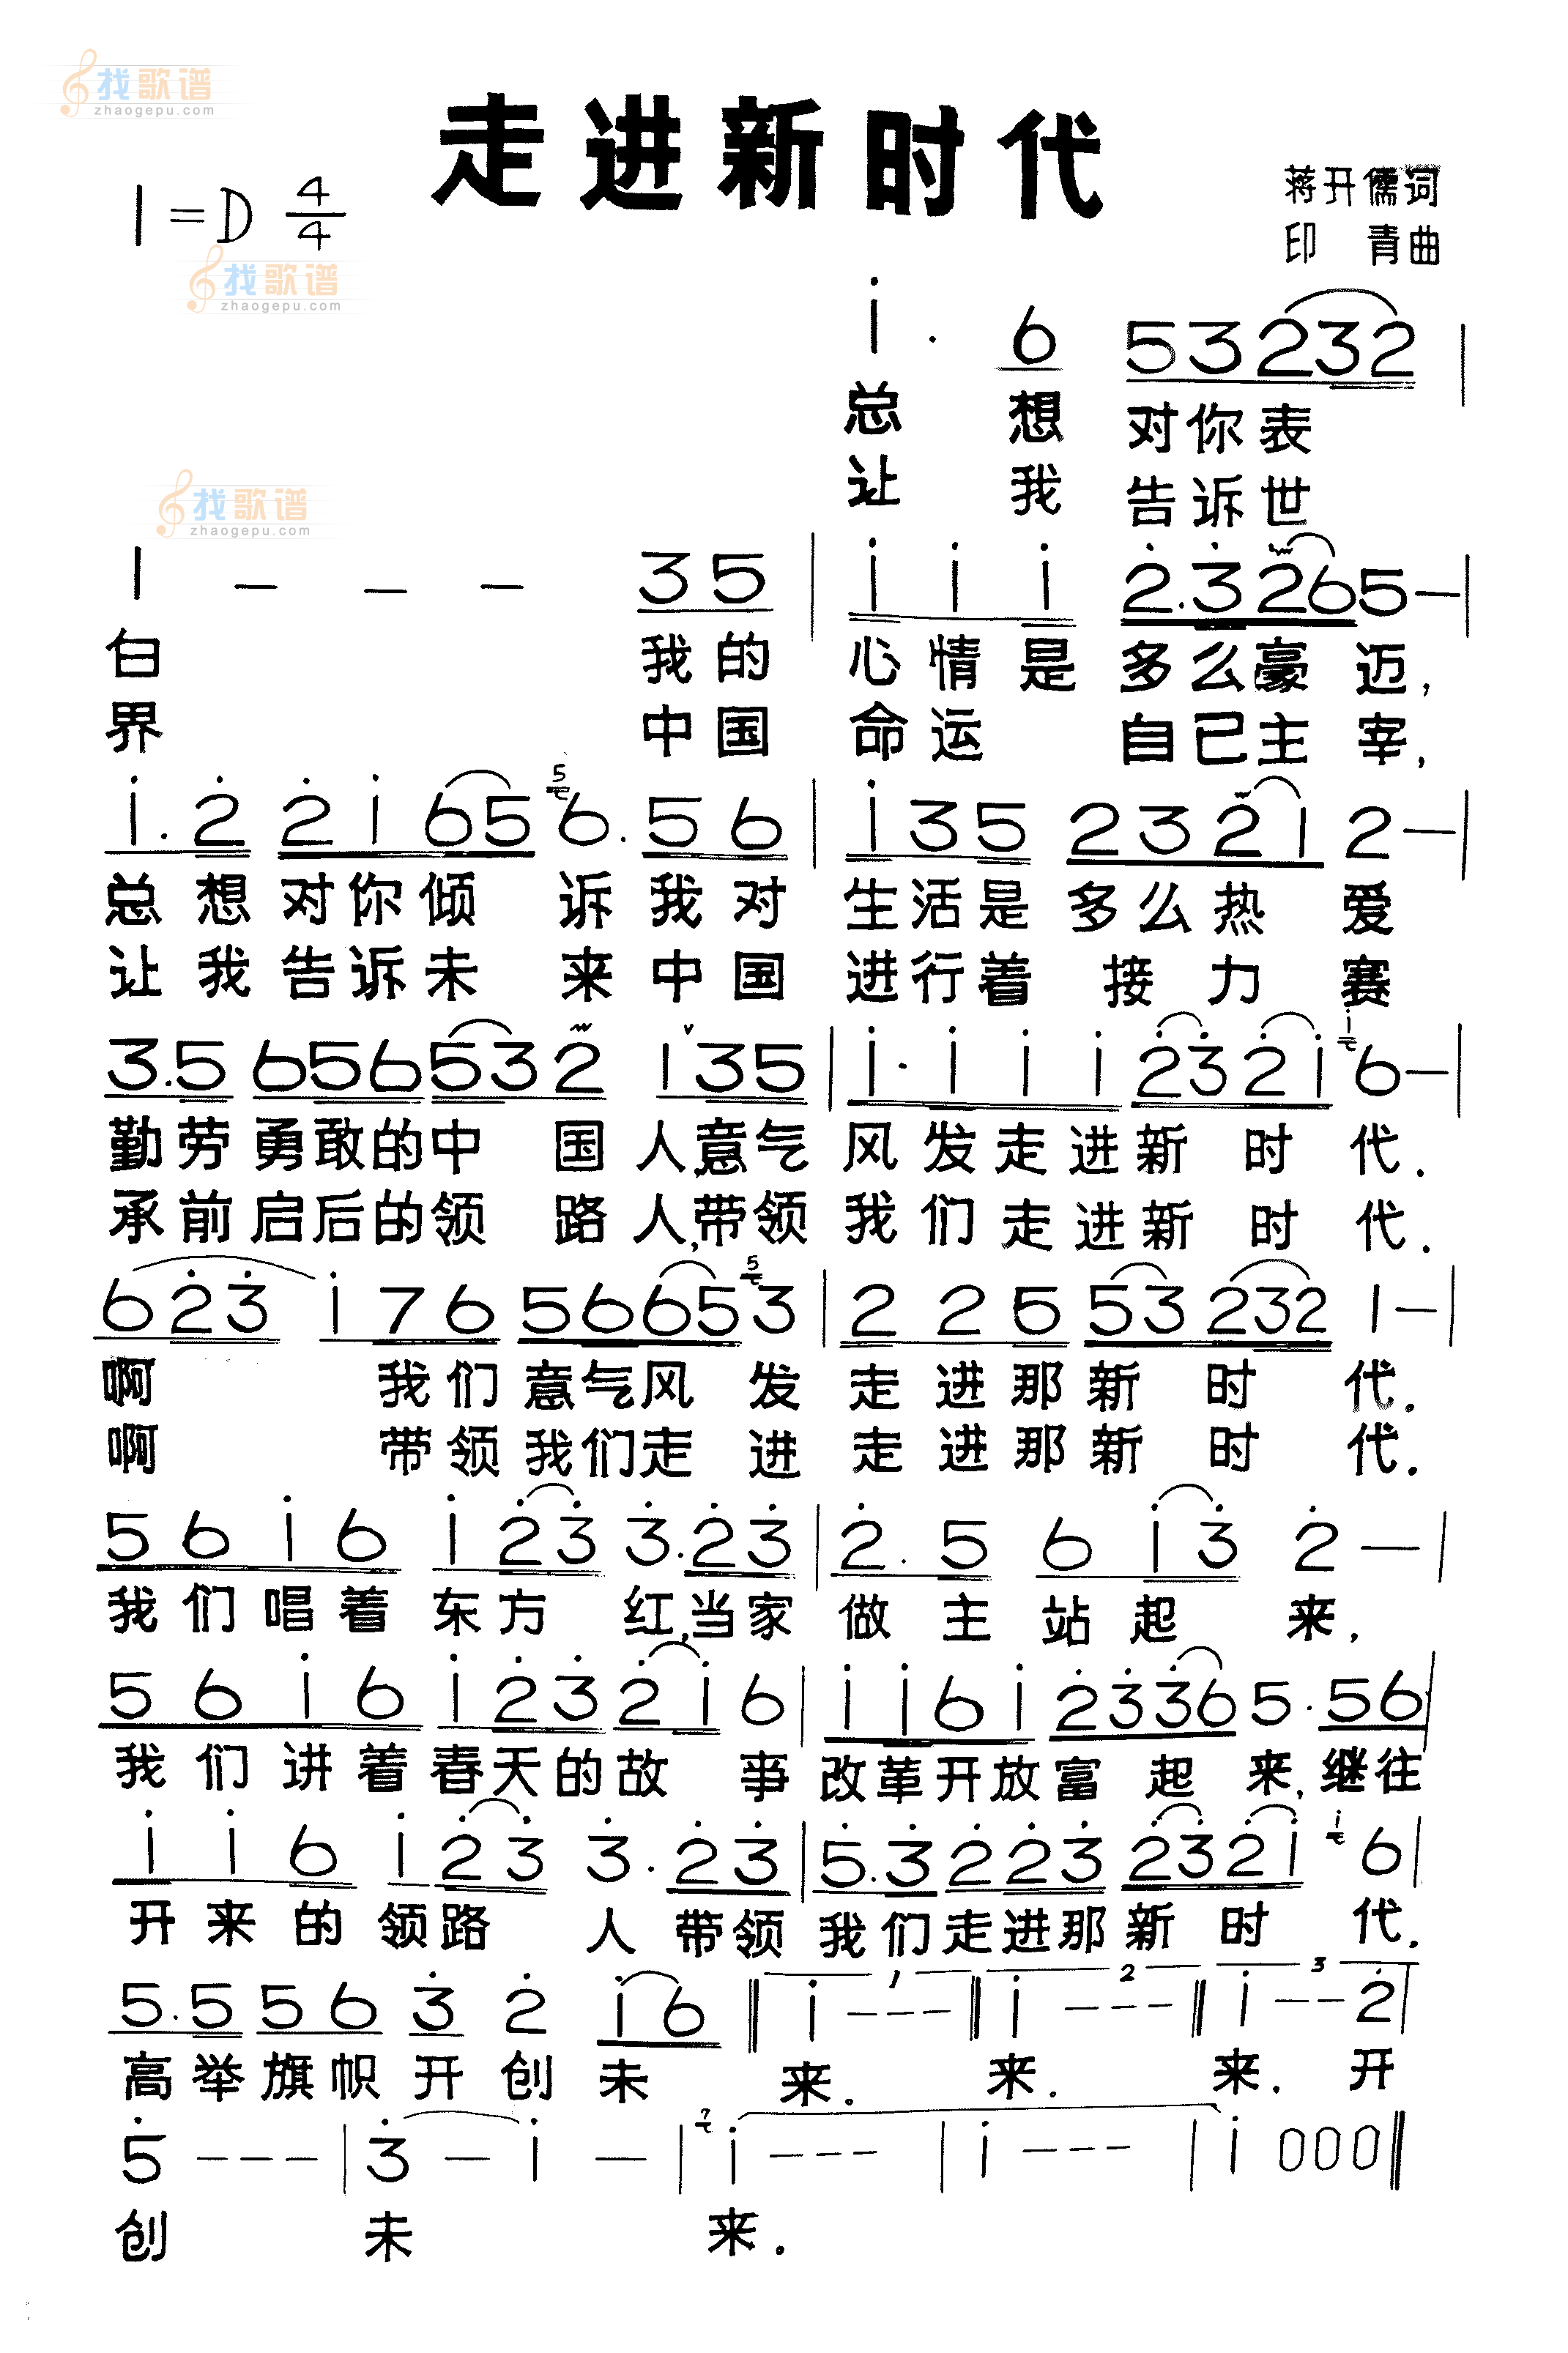 找歌谱
zhaogepu.com
走进新时代
1=D 4/4
蒋开儒词
印 青曲
找歌谱
zhaogepu.com
i . 6 5 3 2 3 2 |
总 想 对你表
让 我 告诉世
找歌谱
zhaogepu.com
1 — — — 3 5 | i i i 2 . 3 2 6 5 — |
白 我的 心情是 多么豪 迈,
界 中国 命运 自己主 宰,
i . 2 2 i 6 5 5 6 . 5 6 | i 3 5 2 3 2 1 2 — |
总 想对你倾 诉 我对 生活是 多么热 爱
让 我告诉未 来 中国 进行着 接力 赛
3 . 5 6 5 6 5 3 2 1 3 5 | i . i i i 2 3 2 i i 6 — |
勤劳勇敢的中 国 人,意气 风发走进新 时 代.
承前启后的领 路 人,带领 我们走进新 时 代.
6 2 3 i 7 6 5 6 6 5 5 3 | 2 2 5 5 3 2 3 2 1 — |
啊 我们意气风 发 走进那新 时 代.
啊 带领我们走 进 走进那新 时 代.
5 6 i 6 i 2 3 3 . 2 3 | 2 . 5 6 i 3 2 — |
我们唱着 东方 红,当家 做 主 站起 来,
5 6 i 6 i 2 3 2 i 6 | i i 6 i 2 3 3 6 5 . 5 6 |
我们讲着春天的故 事 改革开放富 起 来,继往
i i 6 i 2 3 3 . 2 3 | 5 . 3 2 2 3 2 3 2 i i 6 |
开来的 领路 人 带领 我们走进那新 时 代.
5 . 5 5 6 3 2 i 6 ‖ 1 i - - - ‖ 2 i - - - ‖ 3 i - - 2 |
高举旗帜开创未 来. 来. 来. 开
5 - - - | 3 — i — | 7 i - - - | i - - - | i 0 0 0 ‖
创 未 来.